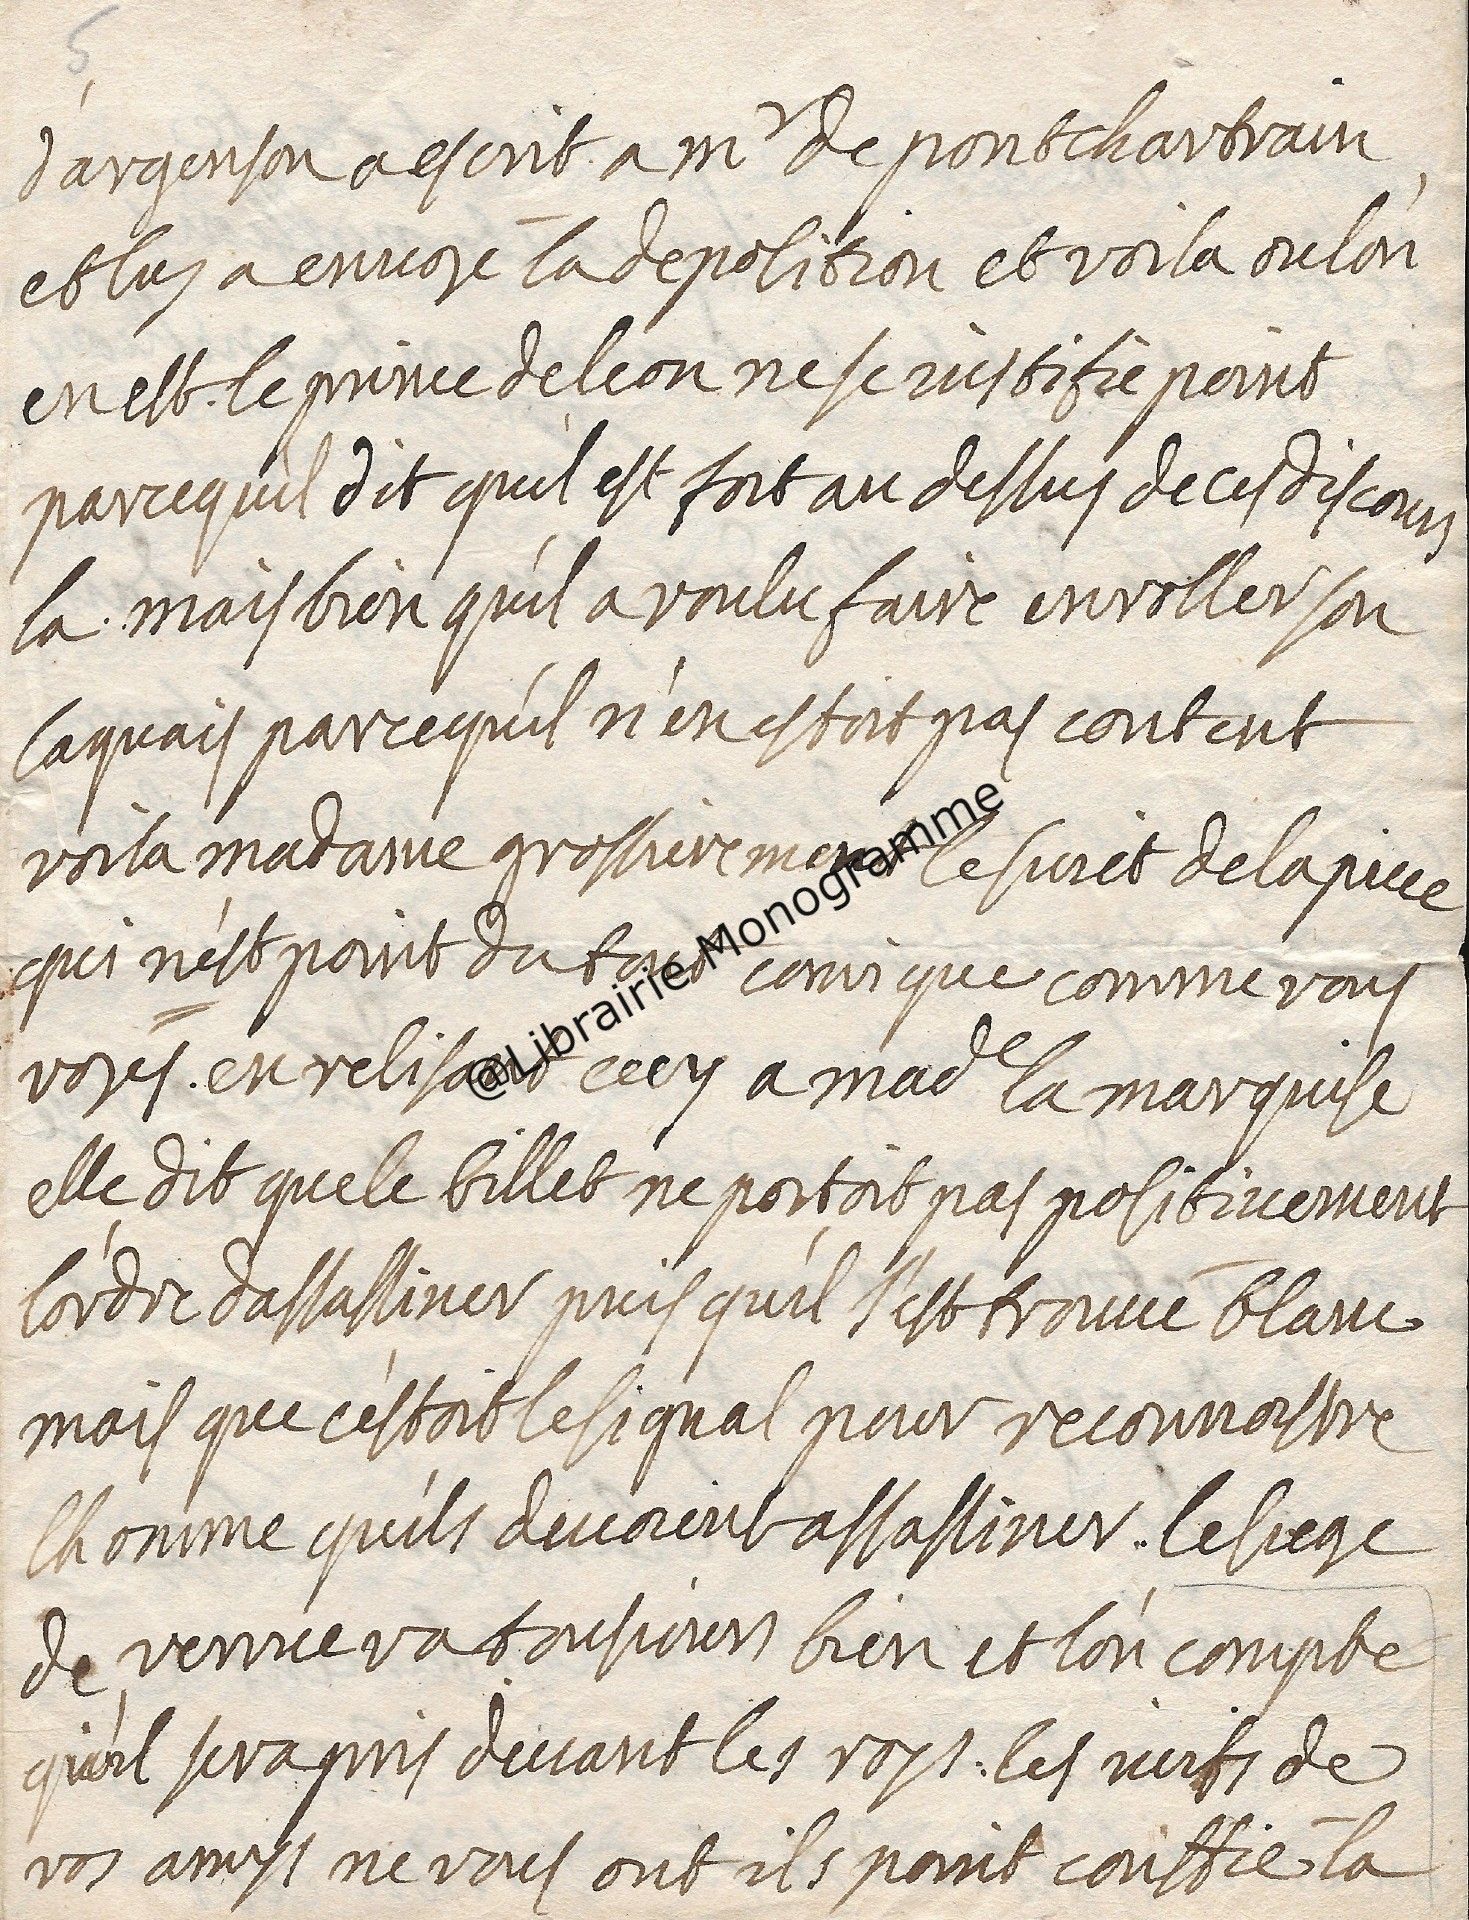 5
d'argenson a escrit a mr de pontchartrain
et luy a enuoyé la deposition et voila ou lón
en est. le prince de leon ne se iustifie point
parcequil dit qu'il est fort au dessus de ces discours
la. mais bien qu'il a voulu faire enroller son
laquais parcequ'il n'en estoit pas content
voila madame grossierement le suiet de la piece
qui n'est point du tout comique comme vous
voyes. en relisant cecy a made la marquise
elle dit que le billet ne portoit pas positiuement
l'ordre dassassiner puis qu'il s'est trouué blanc
mais que c'estoit le signal pour reconnoistre
lhomme qu'ils deuoient assassiner.. le siege
de verrue va tousiours bien et lón compte
qu'il sera pris deuant les roys. les iuifs de
vos amys ne vous ont ils point la
@Librairie Monogramme